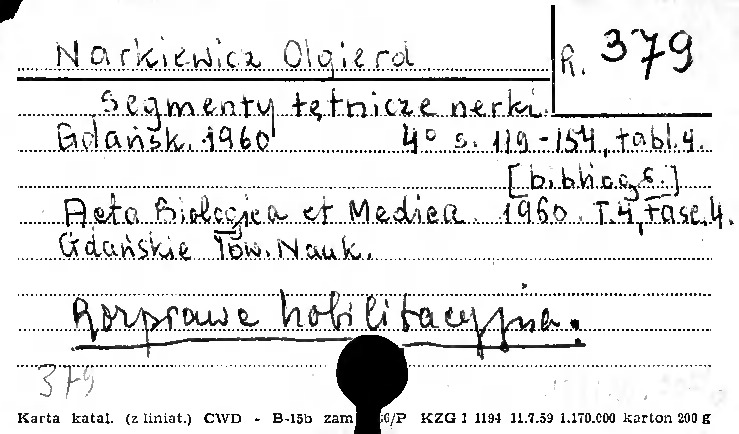 Narkiewicz Olgierd
R. 379
Segmenty tętnicze nerki.
Gdańsk. 1960 4° s. 119-154, tabl. 4.
[bibliogr.]
Acta Biologica et Medica. 1960. T.4, fasc. 4.
Gdańskie Tow. Nauk.
Rozprawa habilitacyjna.
379
Karta katal. (z liniat.) CWD - B-15b zam 56/P KZG 1 1194 11.7.59 1.170.000 karton 200 g